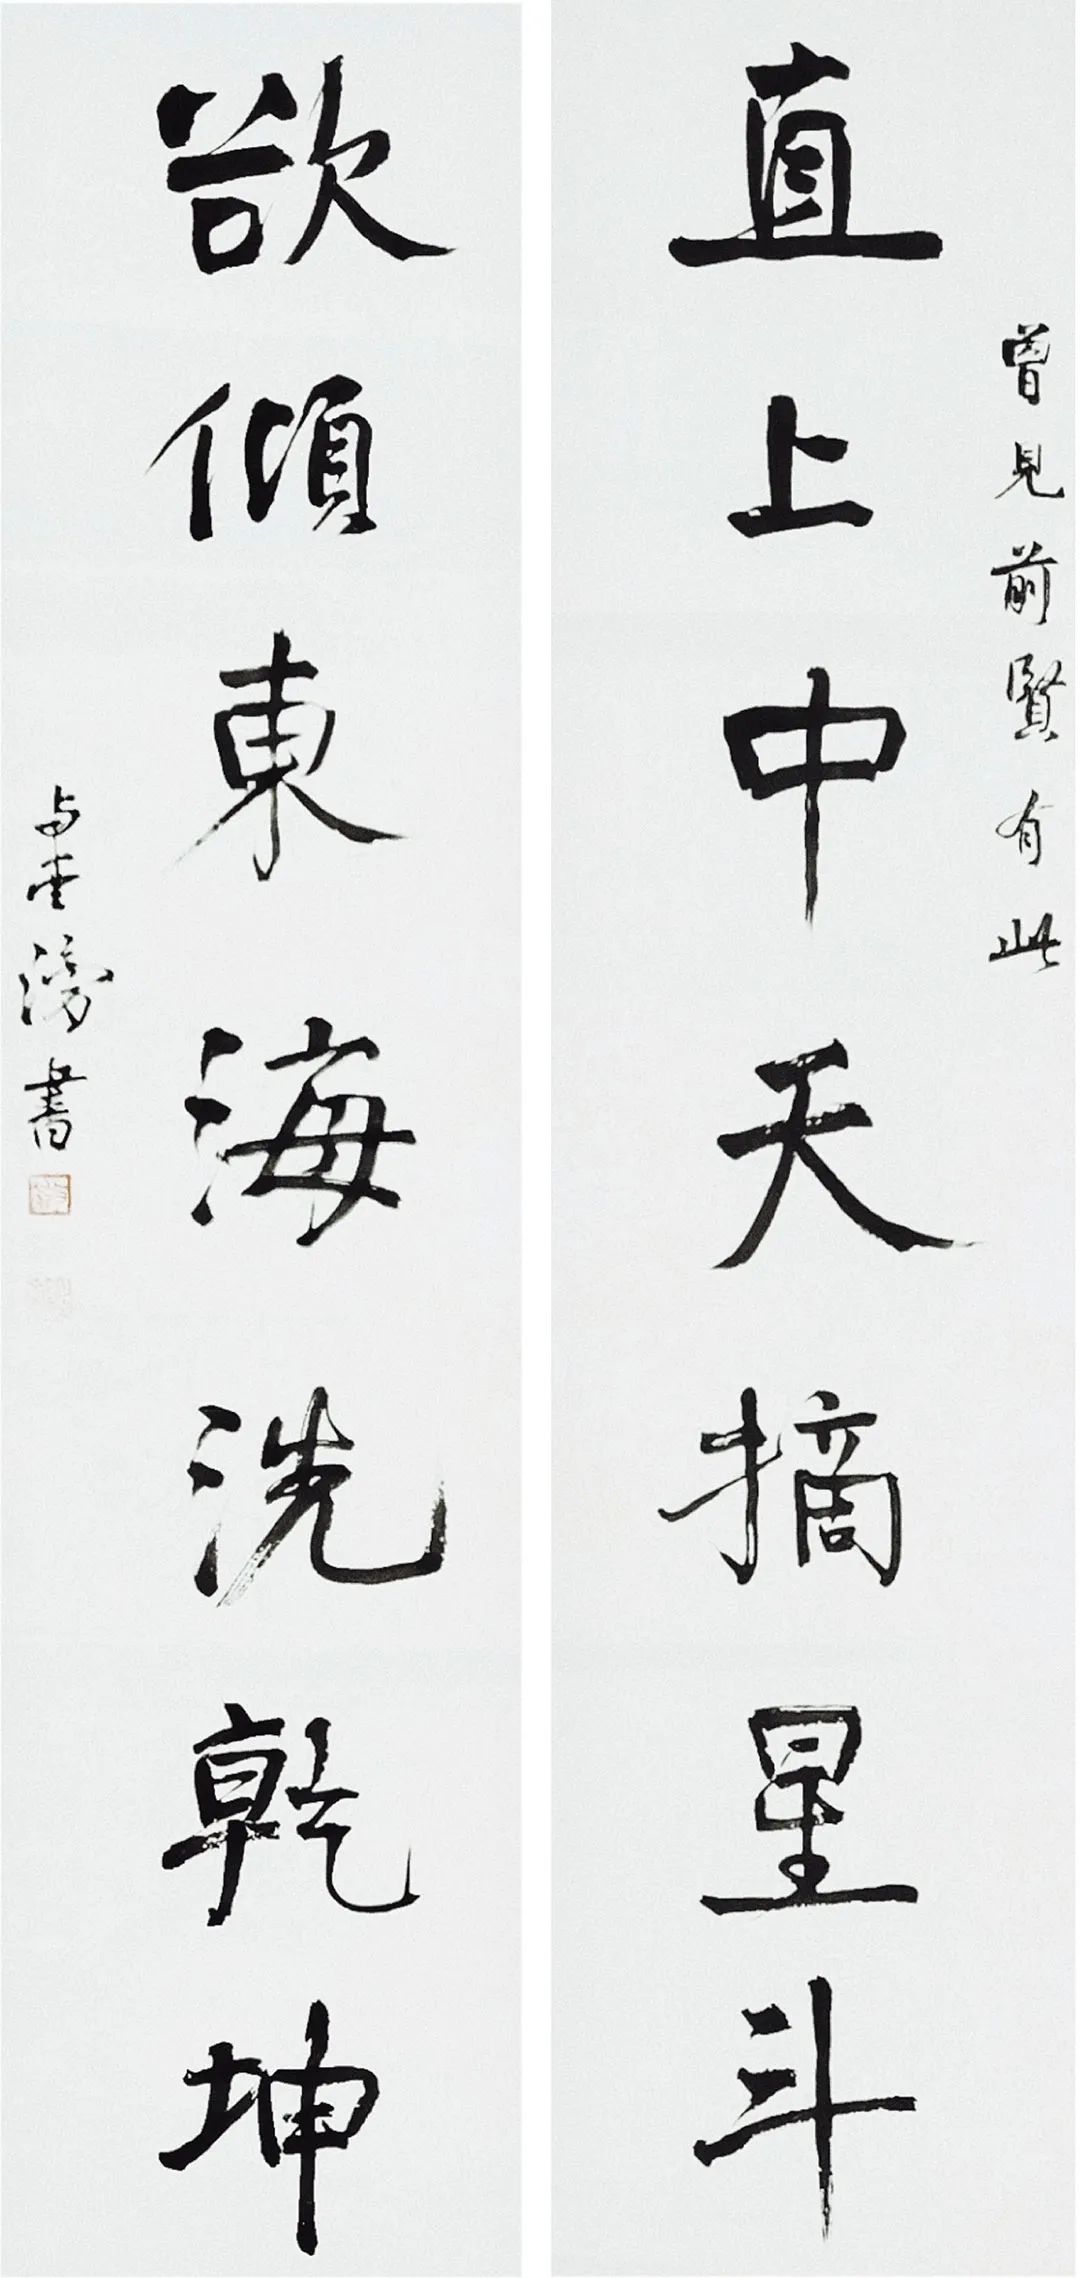 曾見前賢有此
直上中天摘星斗
欲傾東海洗乾坤
書